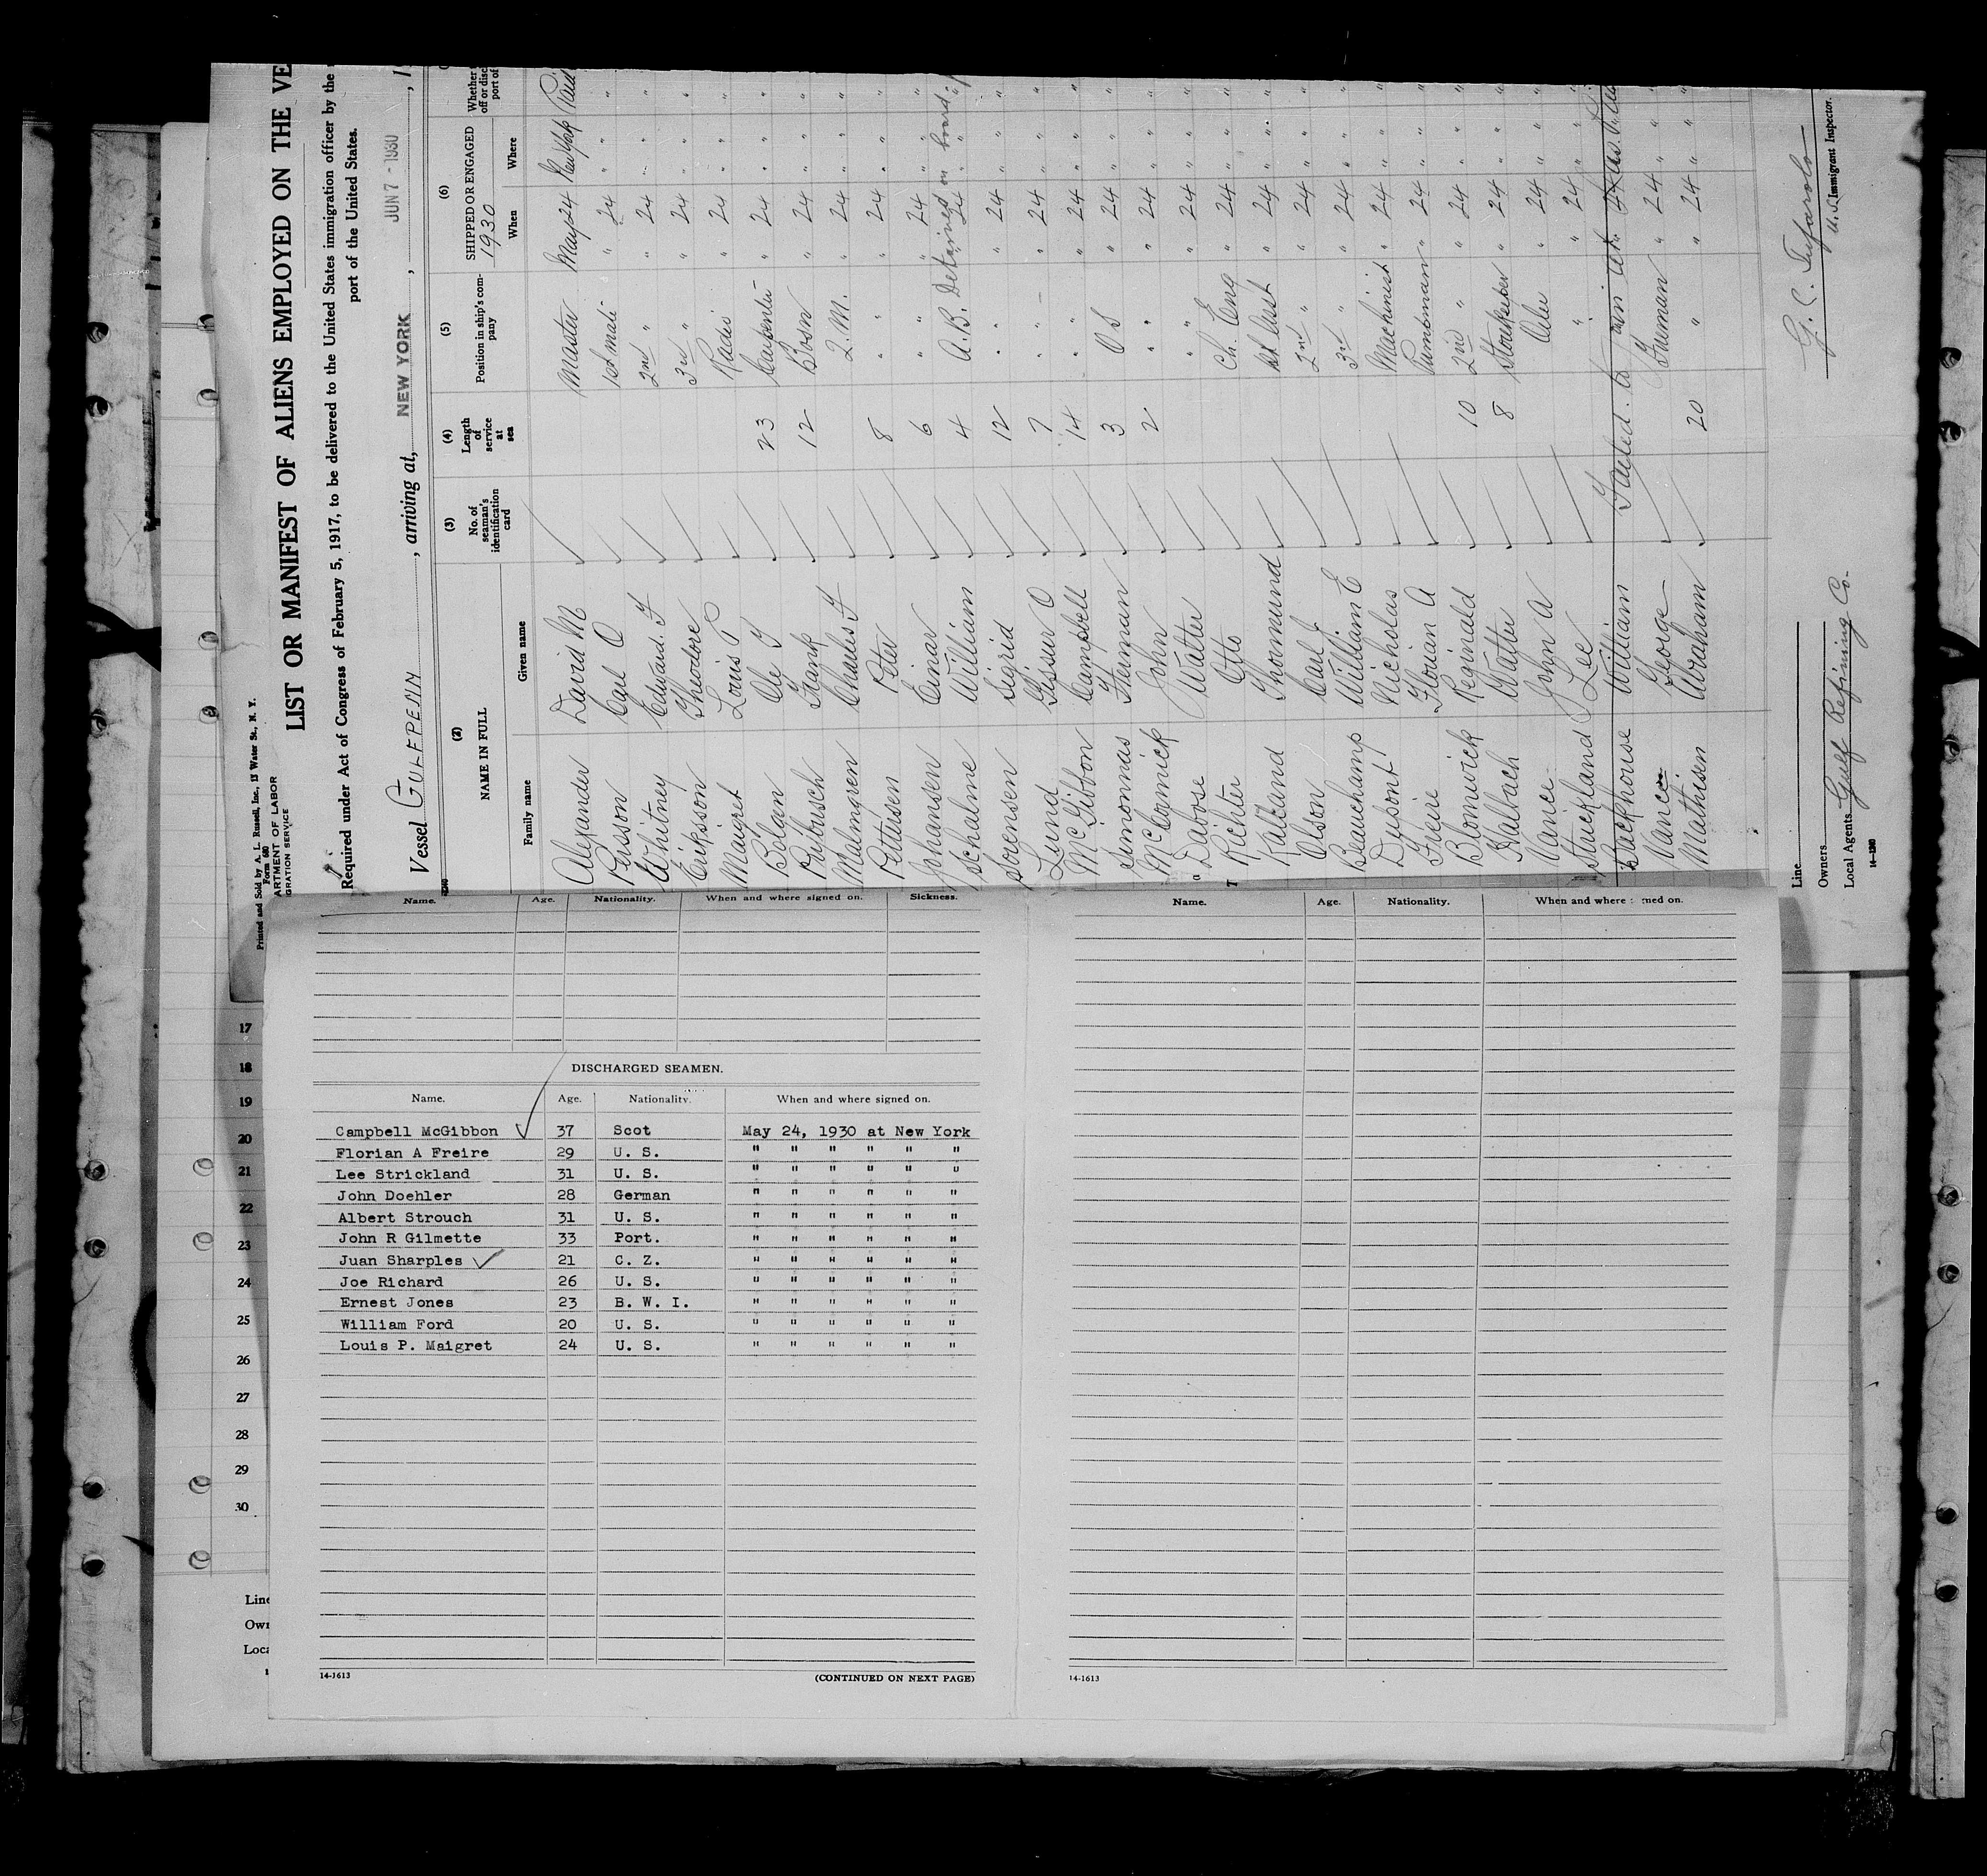 Printed and Sold by A. L. Russell, Inc., 12 Water St., N. Y.
Form 680
ARTMENT OF LABOR
GRATION SERVICE
LIST OR MANIFEST OF ALIENS EMPLOYED ON THE VE
Required under Act of Congress of February 5, 1917, to be delivered to the United States immigration officer by the
port of the United States.
Vessel GULFPENN, arriving at, NEW YORK, JUN 7 - 1930, 1
(2) (3) (4) (5) (6)
NAME IN FULL No. of seaman's identification card Length of service at sea Position in ship's company SHIPPED OR ENGAGED 1930 Whether off or disc port of
Family name Given name When Where
Alexander David M Master May 24 New York Paid
Persson Carl O 1st mate " 24 " "
Whitney Edward F 2nd " " 24 " "
Erickson Theodore 3rd " " 24 " "
Maigret Louis P Radio " 24 " "
Bolan Ole T 23 Carpenter " 24 " "
Frank 12 Bosn " 24 " "
Malmgren Charles F Q.M. " 24 " "
Pettersen Peter 8 " " 24 " "
Johansen Einar 6 " " 24 " "
Schamne William 4 A.B. Detained on board 24 " "
Sorensen Sigrid 12 " " 24 " "
Lund Gissur O 7 " " 24 " "
McGibbon Campbell 14 " " 24 " "
Simonnas Herman 3 OS " 24 " "
McCormick John 2 " " 24 " "
Dabose Walter " " 24 " "
Richter Otto Ch. Eng " 24 " "
Kalland Thormund 1st Asst " 24 " "
Olson Carl J 2nd " " 24 " "
Beauchamp William E 3rd " " 24 " "
Dupont Nicholas Machinist " 24 " "
Freire Florian A Pumpman " 24 " "
Blomwick Reginald 10 2nd " " 24 " "
Halbach Walter 8 Storekeeper " 24 " "
Vanice John A Oiler " 24 " "
Strickland Lee " " 24 " "
Backhouse William Failed to join
Vance George Fireman " 24 " "
Mathisen Abraham 20 " " 24 " "
G. C.
U.S. Immigrant Inspector.
Line
Owners
Local Agents Gulf Refining Co.
14-1240
Name. Age. Nationality. When and where signed on. Sickness.
Name. Age. Nationality. When and where ned on.
17
18
19
20
21
22
23
24
25
26
27
28
29
30
Line
Own
Loca
DISCHARGED SEAMEN.
Name. Age. Nationality. When and where signed on.
Campbell McGibbon 37 Scot May 24, 1930 at New York
Florian A Freire 29 U. S. " " " " " "
Lee Strickland 31 U. S. " " " " " "
John Doehler 28 German " " " " " "
Albert Strouch 31 U. S. " " " " " "
John R Gilmette 33 Port. " " " " " "
Juan Sharples 21 C. Z. " " " " " "
Joe Richard 26 U. S. " " " " " "
Ernest Jones 23 B. W. I. " " " " " "
William Ford 20 U. S. " " " " " "
Louis P. Maigret 24 U. S. " " " " " "
14-1613 (CONTINUED ON NEXT PAGE)
14-1613